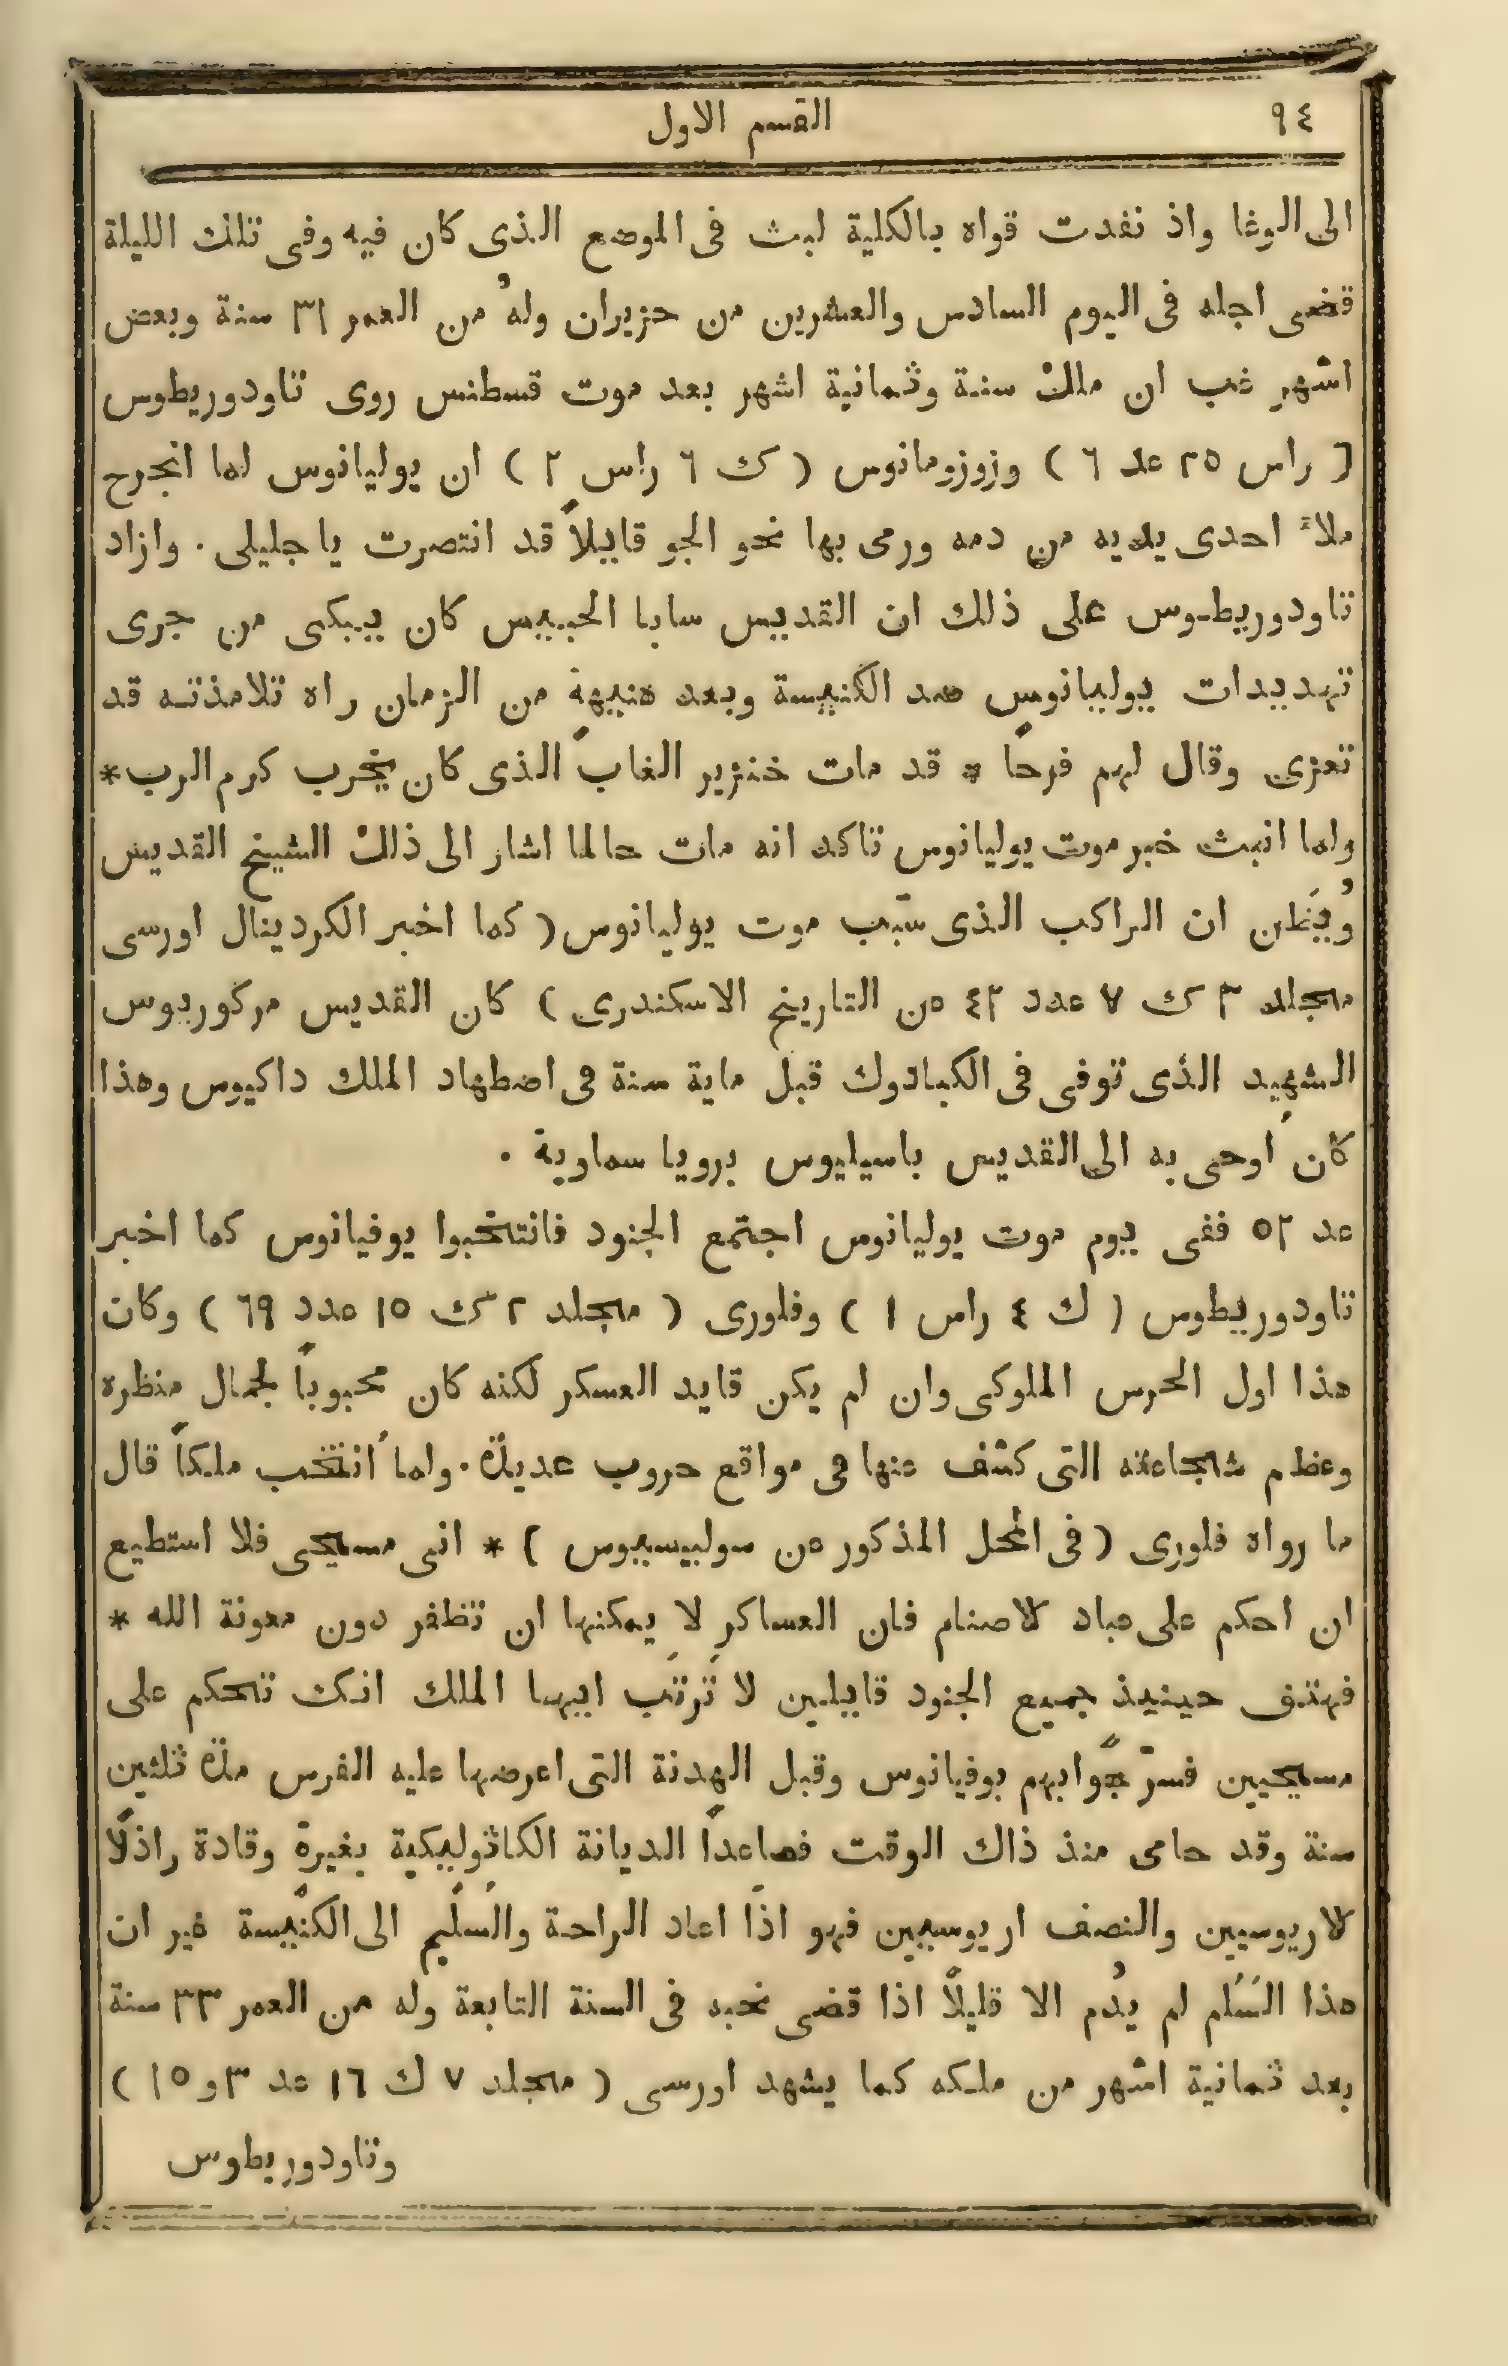 ٩٤
القسم الاول
الى الوغا واذ نفدت قواه بالكلية لبث فى الموضع الذى كان فيه وفى تلك الليلة
قضى اجله فى اليوم السادس والعشرين من حزيران ولهُ من العمر ٣١ سنة وبعض
اشهر غب ان ملك سنة وثمانية اشهر بعد موت قسطنس روى تاودوريطوس
[ راس ٢٥ عد ٦ ) وزوزومانوس ( ك ٦ راس ٢ ) ان يوليانوس لما انجرح
ملأ احدى يديه من دمه ورمى بها نحو الجو قايلاً قد انتصرت يا جليلى . وازاد
تاودوريطوس على ذلك ان القديس سابا الحبيس كان يبكى من جرى
تهديدات يوليانوس ضد الكنيسة وبعد هنيهة من الزمان راه تلامذته قد
تعزى وقال لهم فرحاً * قد مات خنزير الغاب الذى كان يخرب كرم الرب *
ولما انبث خبر موت يوليانوس تاكد انه مات حالما اشار الى ذلك الشيخ القديس
ويُظن ان الراكب الذى سبّب موت يوليانوس ( كما اخبر الكردينال اورسى
مجلد ٣ ك ٧ عدد ٤٢ من التاريخ الاسكندرى ) كان القديس مركوريوس
الشهيد الذى توفى فى الكبادوك قبل ماية سنة فى اضطهاد الملك داكيوس وهذا
كان اُوحى به الى القديس باسيليوس برويا سماوية .
عد ٥٢ ففى يوم موت يوليانوس اجتمع الجنود فانتخبوا يوفيانوس كما اخبر
تاودوريطوس ( ك ٤ راس ١ ) وفلورى ( مجلد ٢ ك ١٥ عدد ٦٩ ) وكان
هذا اول الحرس الملوكى وان لم يكن قايد العسكر لكنه كان محبوباً لجمال منظره
وعظم شجاعته التى كشف عنها فى مواقع حروب عديدة . ولما اُنتخب ملكاً قال
ما رواه فلورى ( فى المحل المذكور من سولبيسيوس ) * انى مسيحى فلا استطيع
ان احكم على عباد الاصنام فان العساكر لا يمكنها ان تظفر دون معونة الله *
فهتف حينيذ جميع الجنود قايلين لا تَرتَب ايها الملك انك تحكم على
مسيحيين فسرّ بجوابهم يوفيانوس وقبل الهدنة التى اعرضها عليه الفرس مدة ثلثين
سنة وقد حامى منذ ذاك الوقت فصاعداً الديانة الكاثوليكية بغيرة وقادة راذلاً
الاريوسيين والنصف اريوسيين فهو اذاً اعاد الراحة والسَلَم الى الكنيسة غير ان
هذا السَلَم لم يدُم الا قليلاً اذا قضى نحبه فى السنة التابعة وله من العمر ٣٣ سنة
بعد ثمانية اشهر من ملكه كما يشهد اورسى ( مجلد ٧ ك ١٦ عد ٣ و ١٥ )
وتاودوريطوس